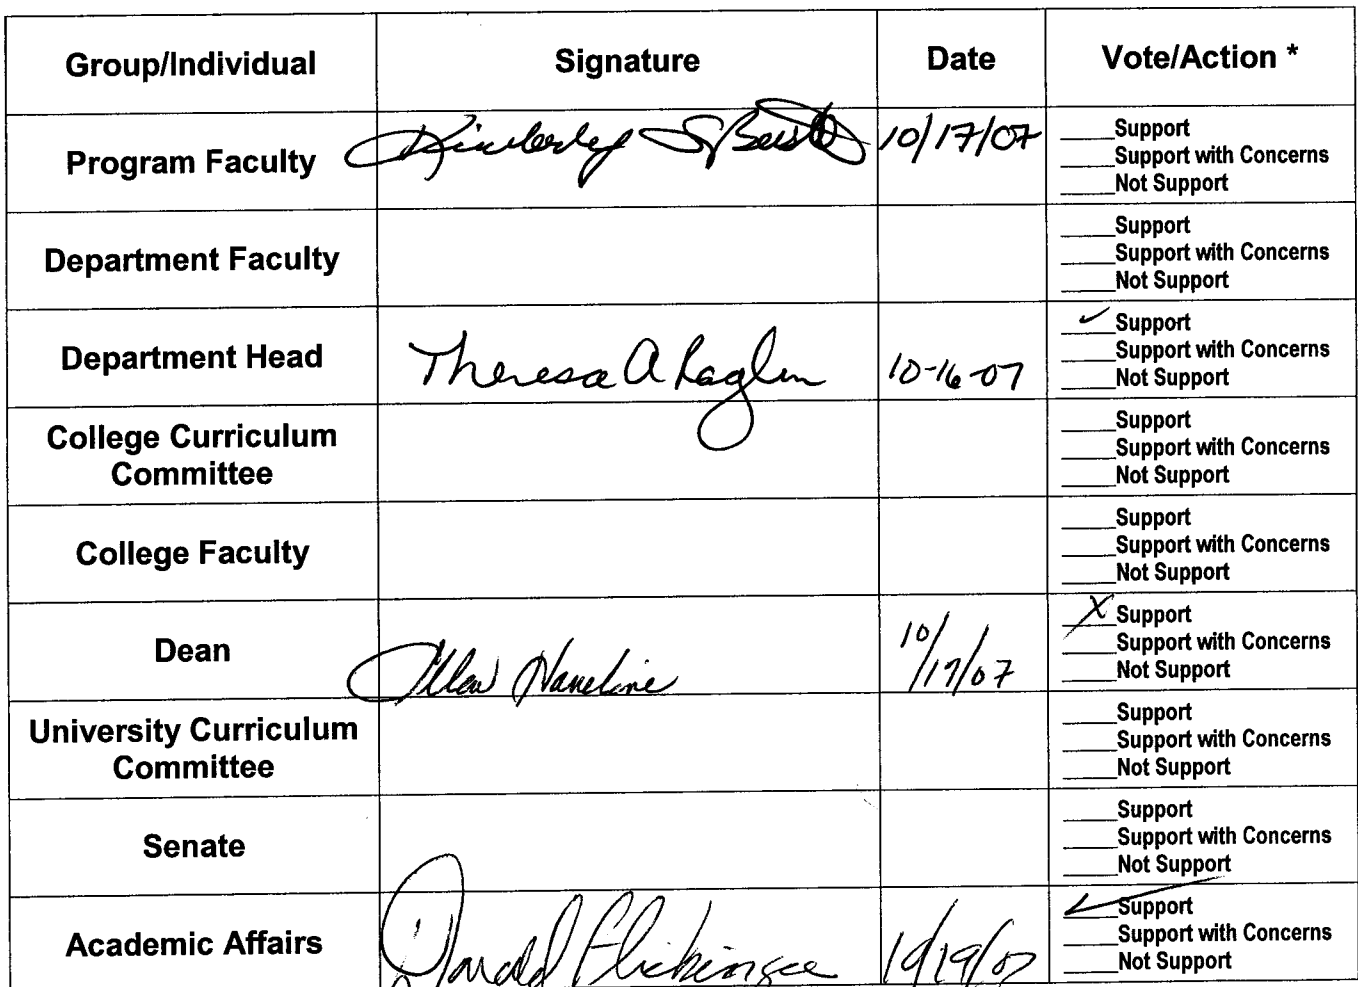 Group/Individual Signature Date Vote/Action *
Program Faculty Kimberly S 10/17/07 ____Support
____Support with Concerns
____Not Support
Department Faculty ____Support
____Support with Concerns
____Not Support
Department Head Theresa A Raglin 10-16-07 ✓Support
____Support with Concerns
____Not Support
College Curriculum
Committee ____Support
____Support with Concerns
____Not Support
College Faculty ____Support
____Support with Concerns
____Not Support
Dean Haneline 10/17/07 X Support
____Support with Concerns
____Not Support
University Curriculum
Committee ____Support
____Support with Concerns
____Not Support
Senate ____Support
____Support with Concerns
____Not Support
Academic Affairs Donald Flickinger ✓Support
____Support with Concerns
____Not Support